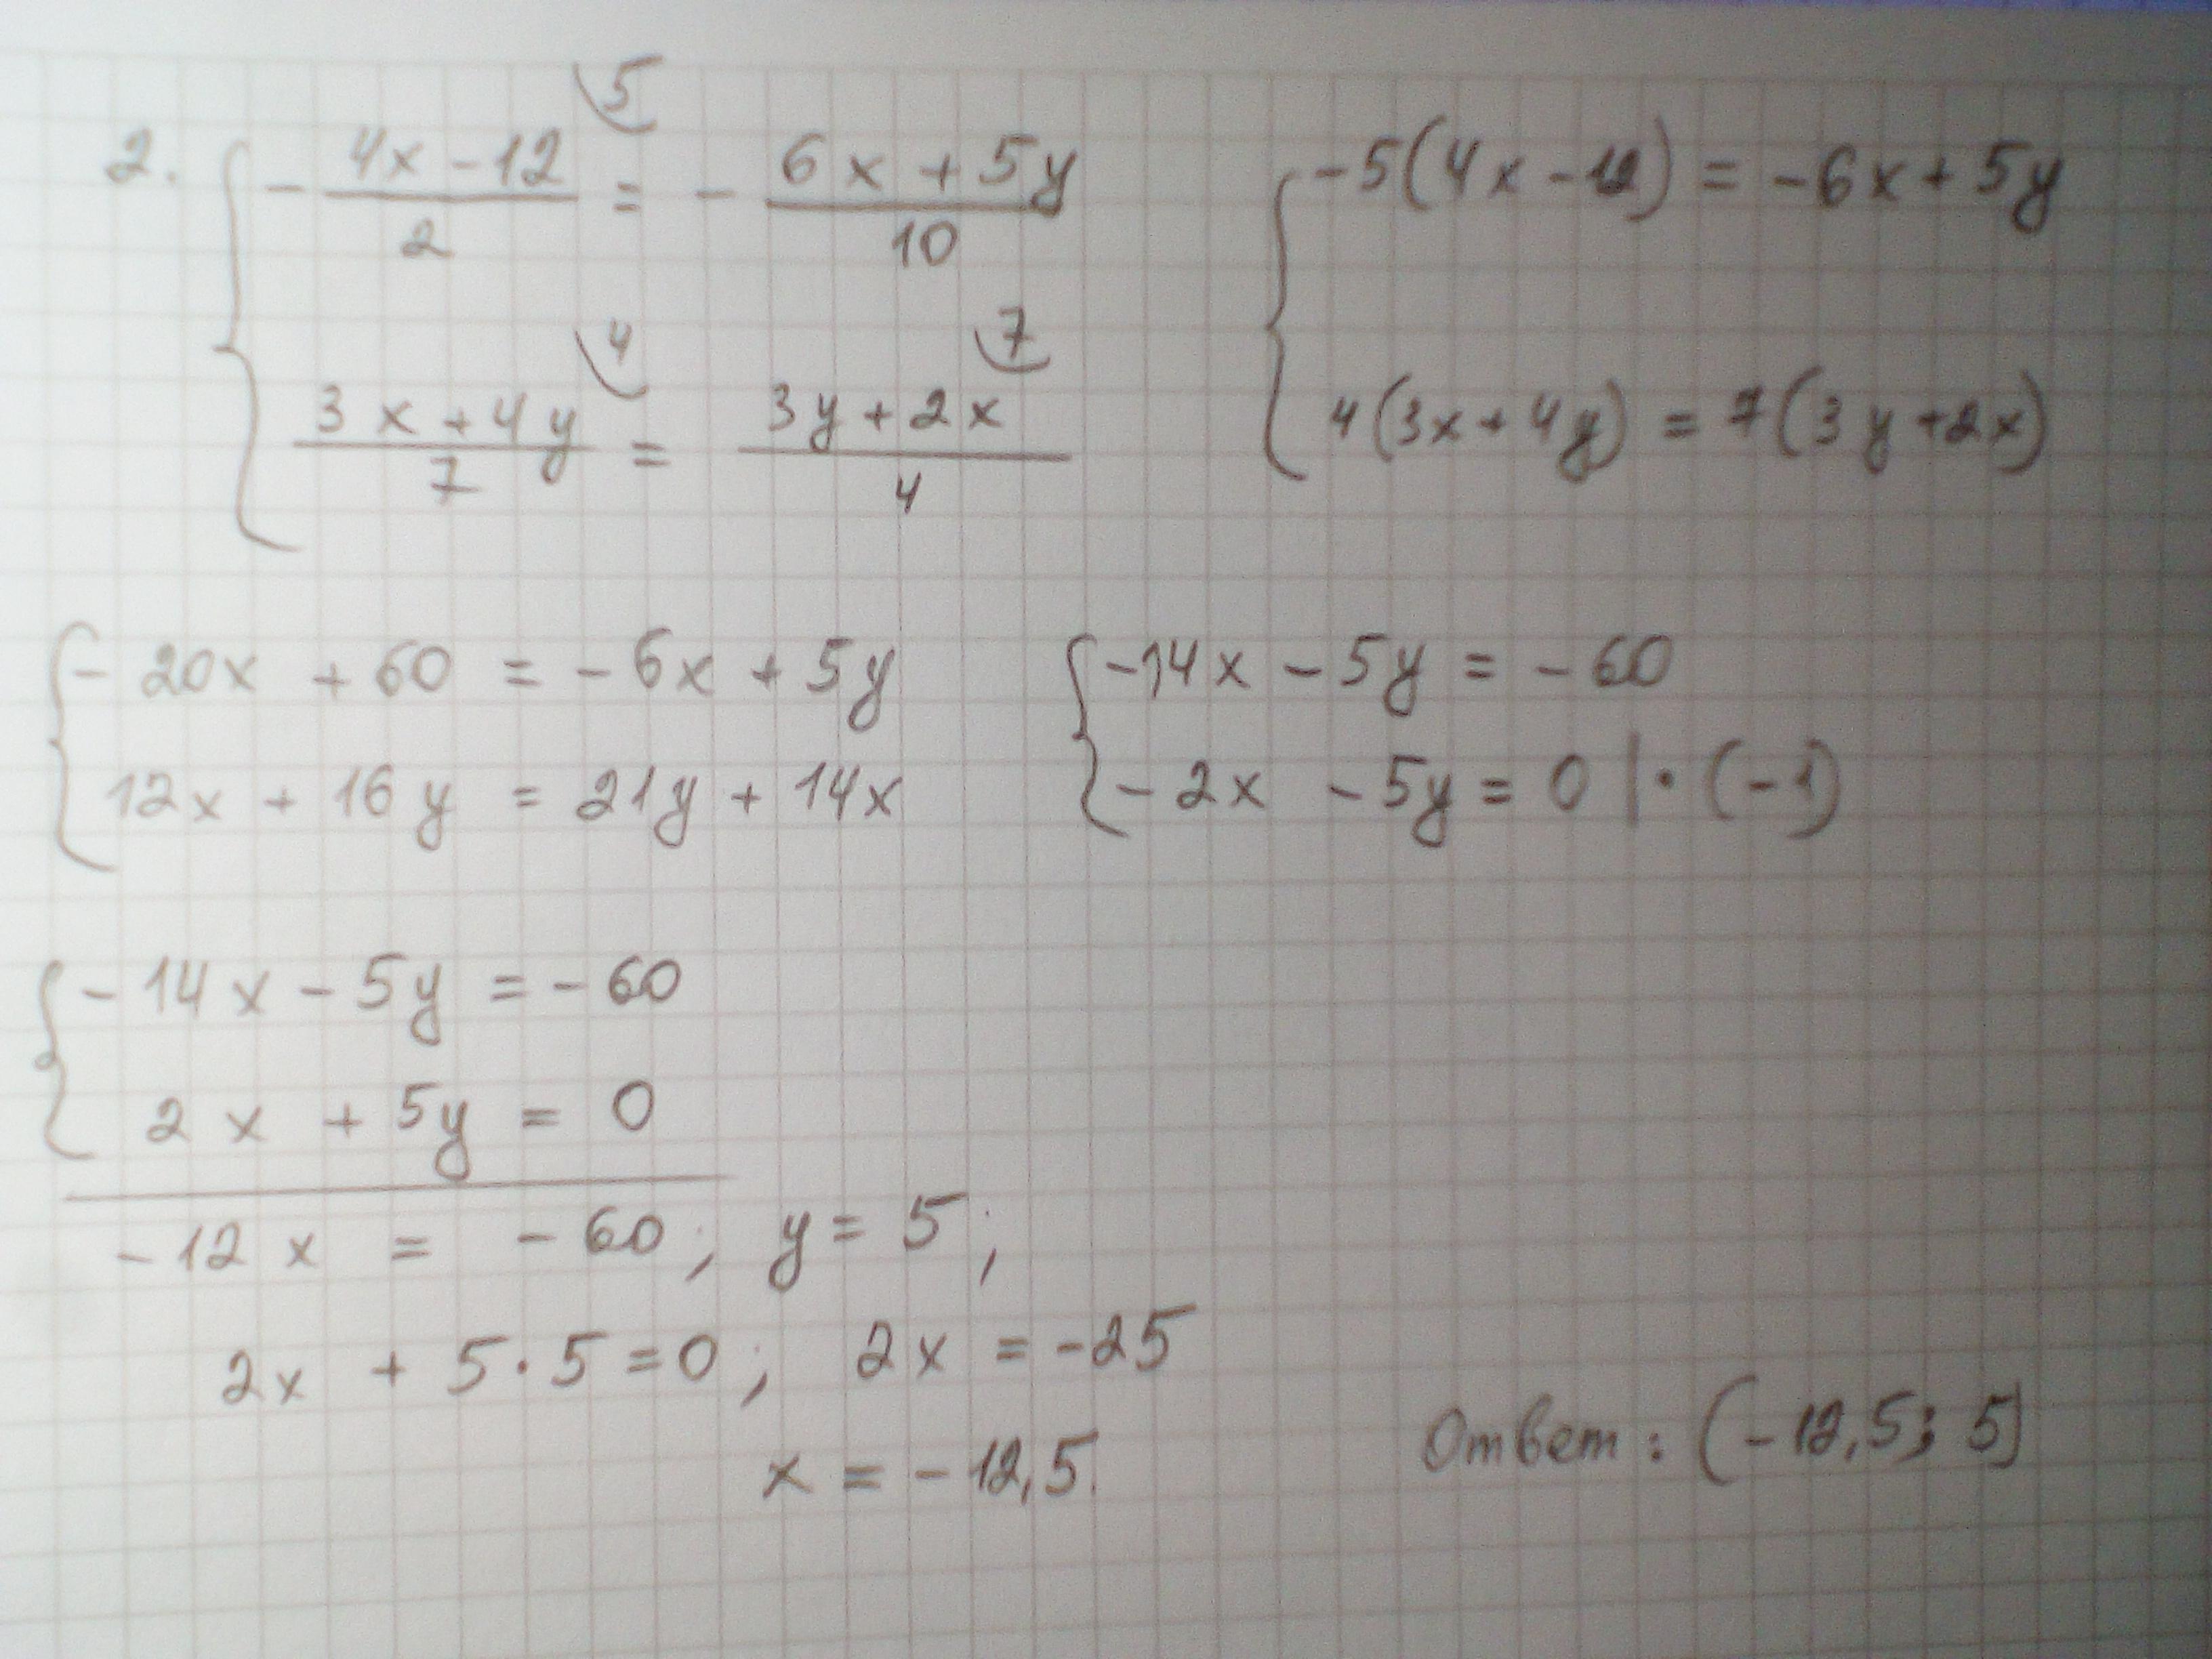 2. { - (4x - 12)/2 ⁵ = - (6x + 5y)/10
(3x + 4y)/7 ⁴ = (3y + 2x)/4 ⁷
{ -5(4x - 12) = -6x + 5y
4(3x + 4y) = 7(3y + 2x)
{ - 20x + 60 = - 6x + 5y
12x + 16y = 21y + 14x
{ -14x - 5y = - 60
- 2x - 5y = 0 | · (-1)
{ - 14x - 5y = - 60
2x + 5y = 0
- 12x = - 60; y = 5;
2x + 5·5 = 0; 2x = -25
x = - 12,5.
Ответ: (- 12,5; 5)